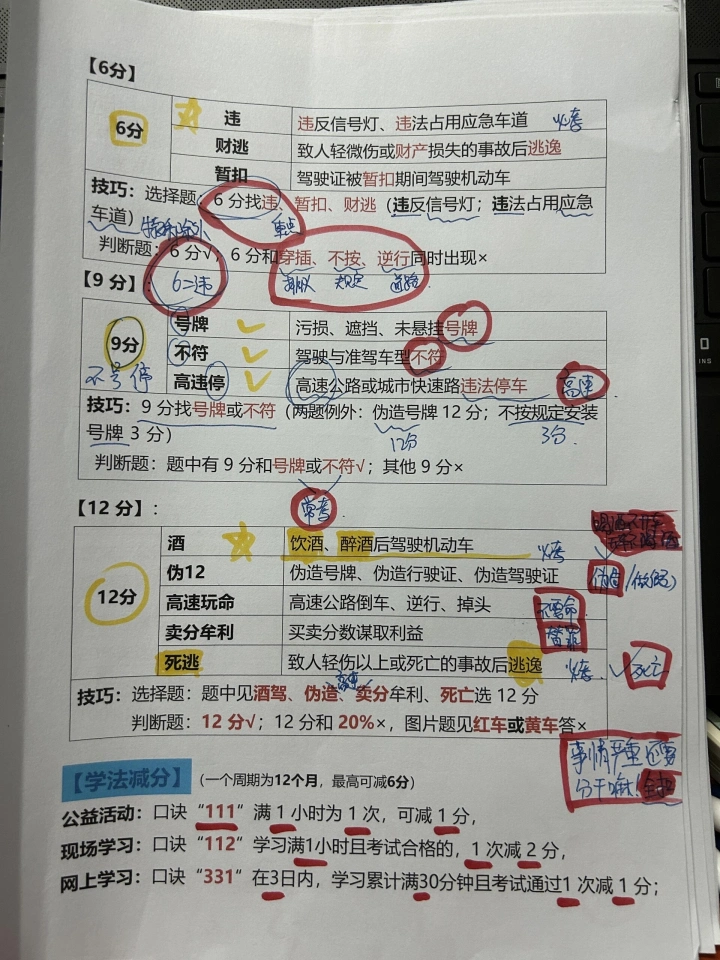 【6分】
6分
违 违反信号灯、违法占用应急车道 必考
财逃 致人轻微伤或财产损失的事故后逃逸
暂扣 驾驶证被暂扣期间驾驶机动车
技巧：选择题：6分找违、暂扣、财逃（违反信号灯；违法占用应急
车道） 重点
判断题：6分√；6分和穿插、不按、逆行同时出现×
【9分】： 6=违 规定 道路
9分
号牌 污损、遮挡、未悬挂号牌
不符 驾驶与准驾车型不符
高速停 高速公路或城市快速路违法停车 高速
不号停
技巧：9分找号牌或不符（两题例外：伪造号牌12分；不按规定安装
号牌3分） 12分 3分
判断题：题中有9分和号牌或不符√；其他9分×
常考
【12分】：
12分
酒 饮酒、醉酒后驾驶机动车 必考
伪12 伪造号牌、伪造行驶证、伪造驾驶证 伪造
高速玩命 高速公路倒车、逆行、掉头 不要命
卖分牟利 买卖分数谋取利益
死逃 致人轻伤以上或死亡的事故后逃逸 必考 死亡
技巧：选择题：题中见酒驾、伪造、卖分牟利、死亡选12分
高速
判断题：12分√；12分和20%×，图片题见红车或黄车答×
事情严重还要
分干嘛！全扣
【学法减分】（一个周期为12个月，最高可减6分）
公益活动：口诀“111”满1小时为1次，可减1分，
现场学习：口诀“112”学习满1小时且考试合格的，1次减2分，
网上学习：口诀“331”在3日内，学习累计满30分钟且考试通过1次减1分；